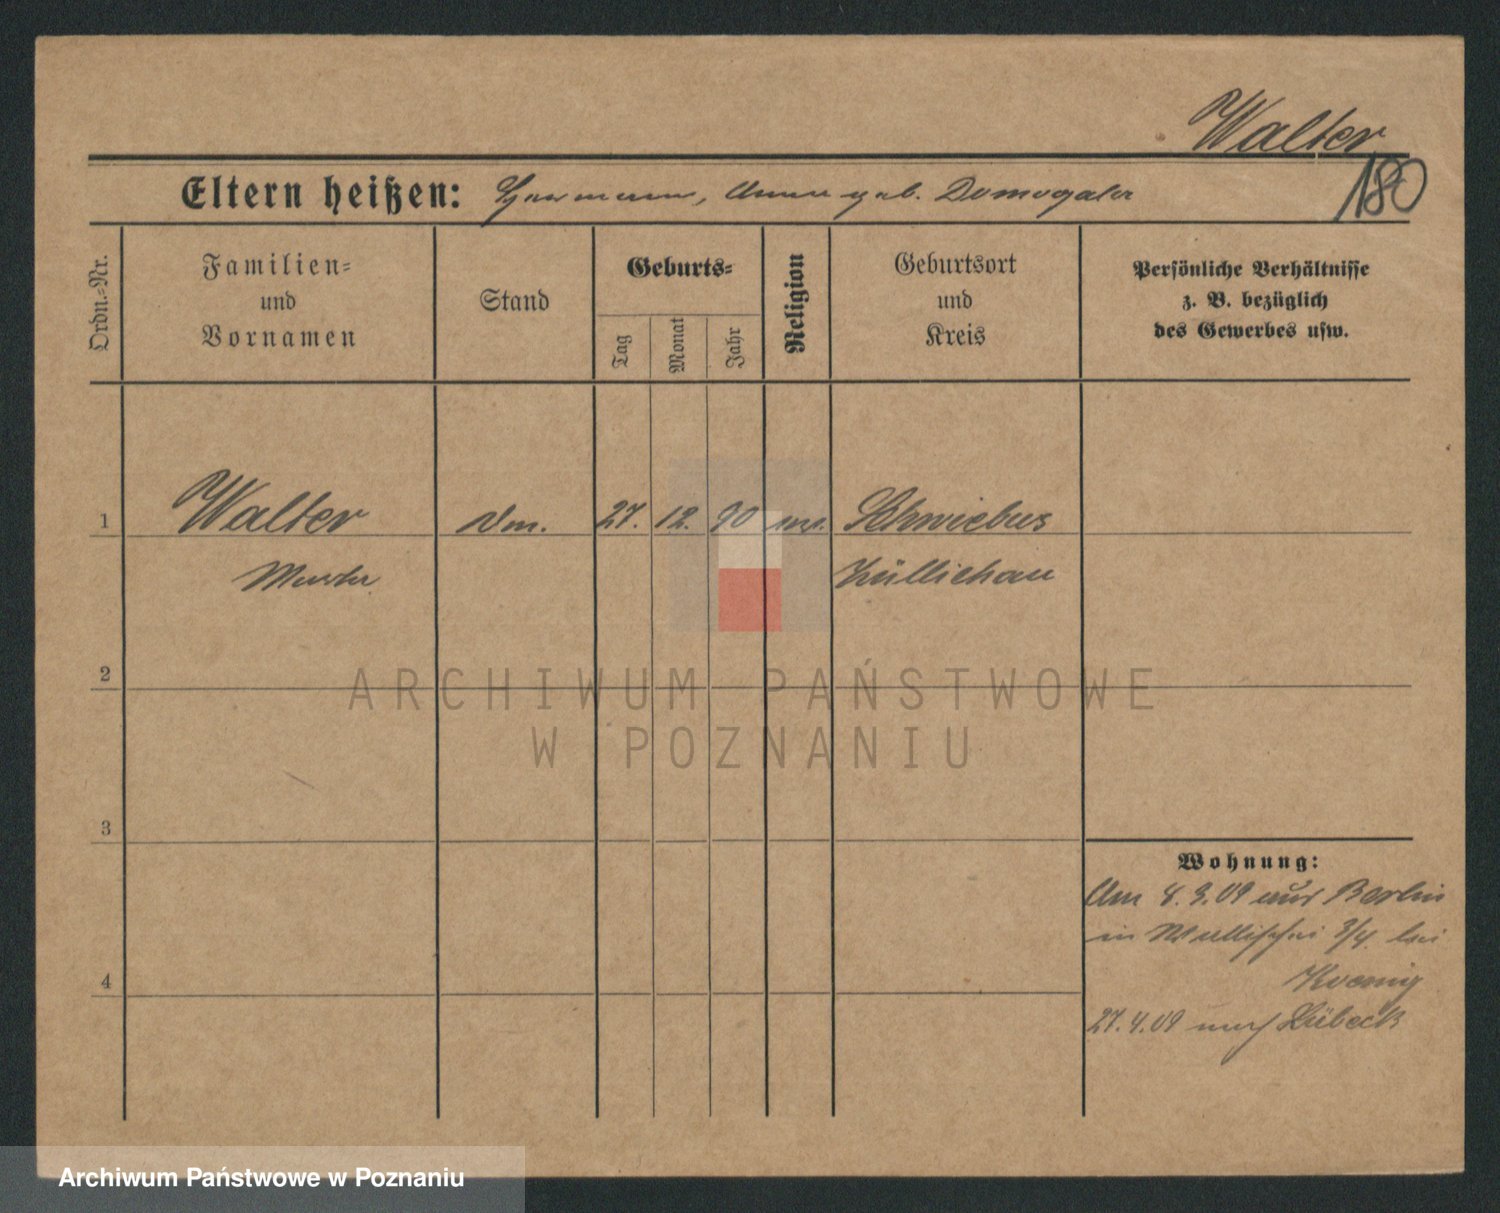 Walter
180
Eltern heißen: Hermann, Anna geb. Domogala
Ordn.-Nr.
Familien-
und
Vornamen
Stand
Geburts-
Tag
Monat
Jahr
Religion
Geburtsort
und
Kreis
Persönliche Verhältnisse
z. B. bezüglich
des Gewerbes usw.
1 Walter 27. 12. 90 Schwiebus
Martha Züllichau
2
3
4
Wohnung:
Am 8. 3. 09 aus Berlin
in 3/4 bei
Koenig
27. 4. 09 nach Lübeck
ARCHIWUM PAŃSTWOWE
W POZNANIU
Archiwum Państwowe w Poznaniu